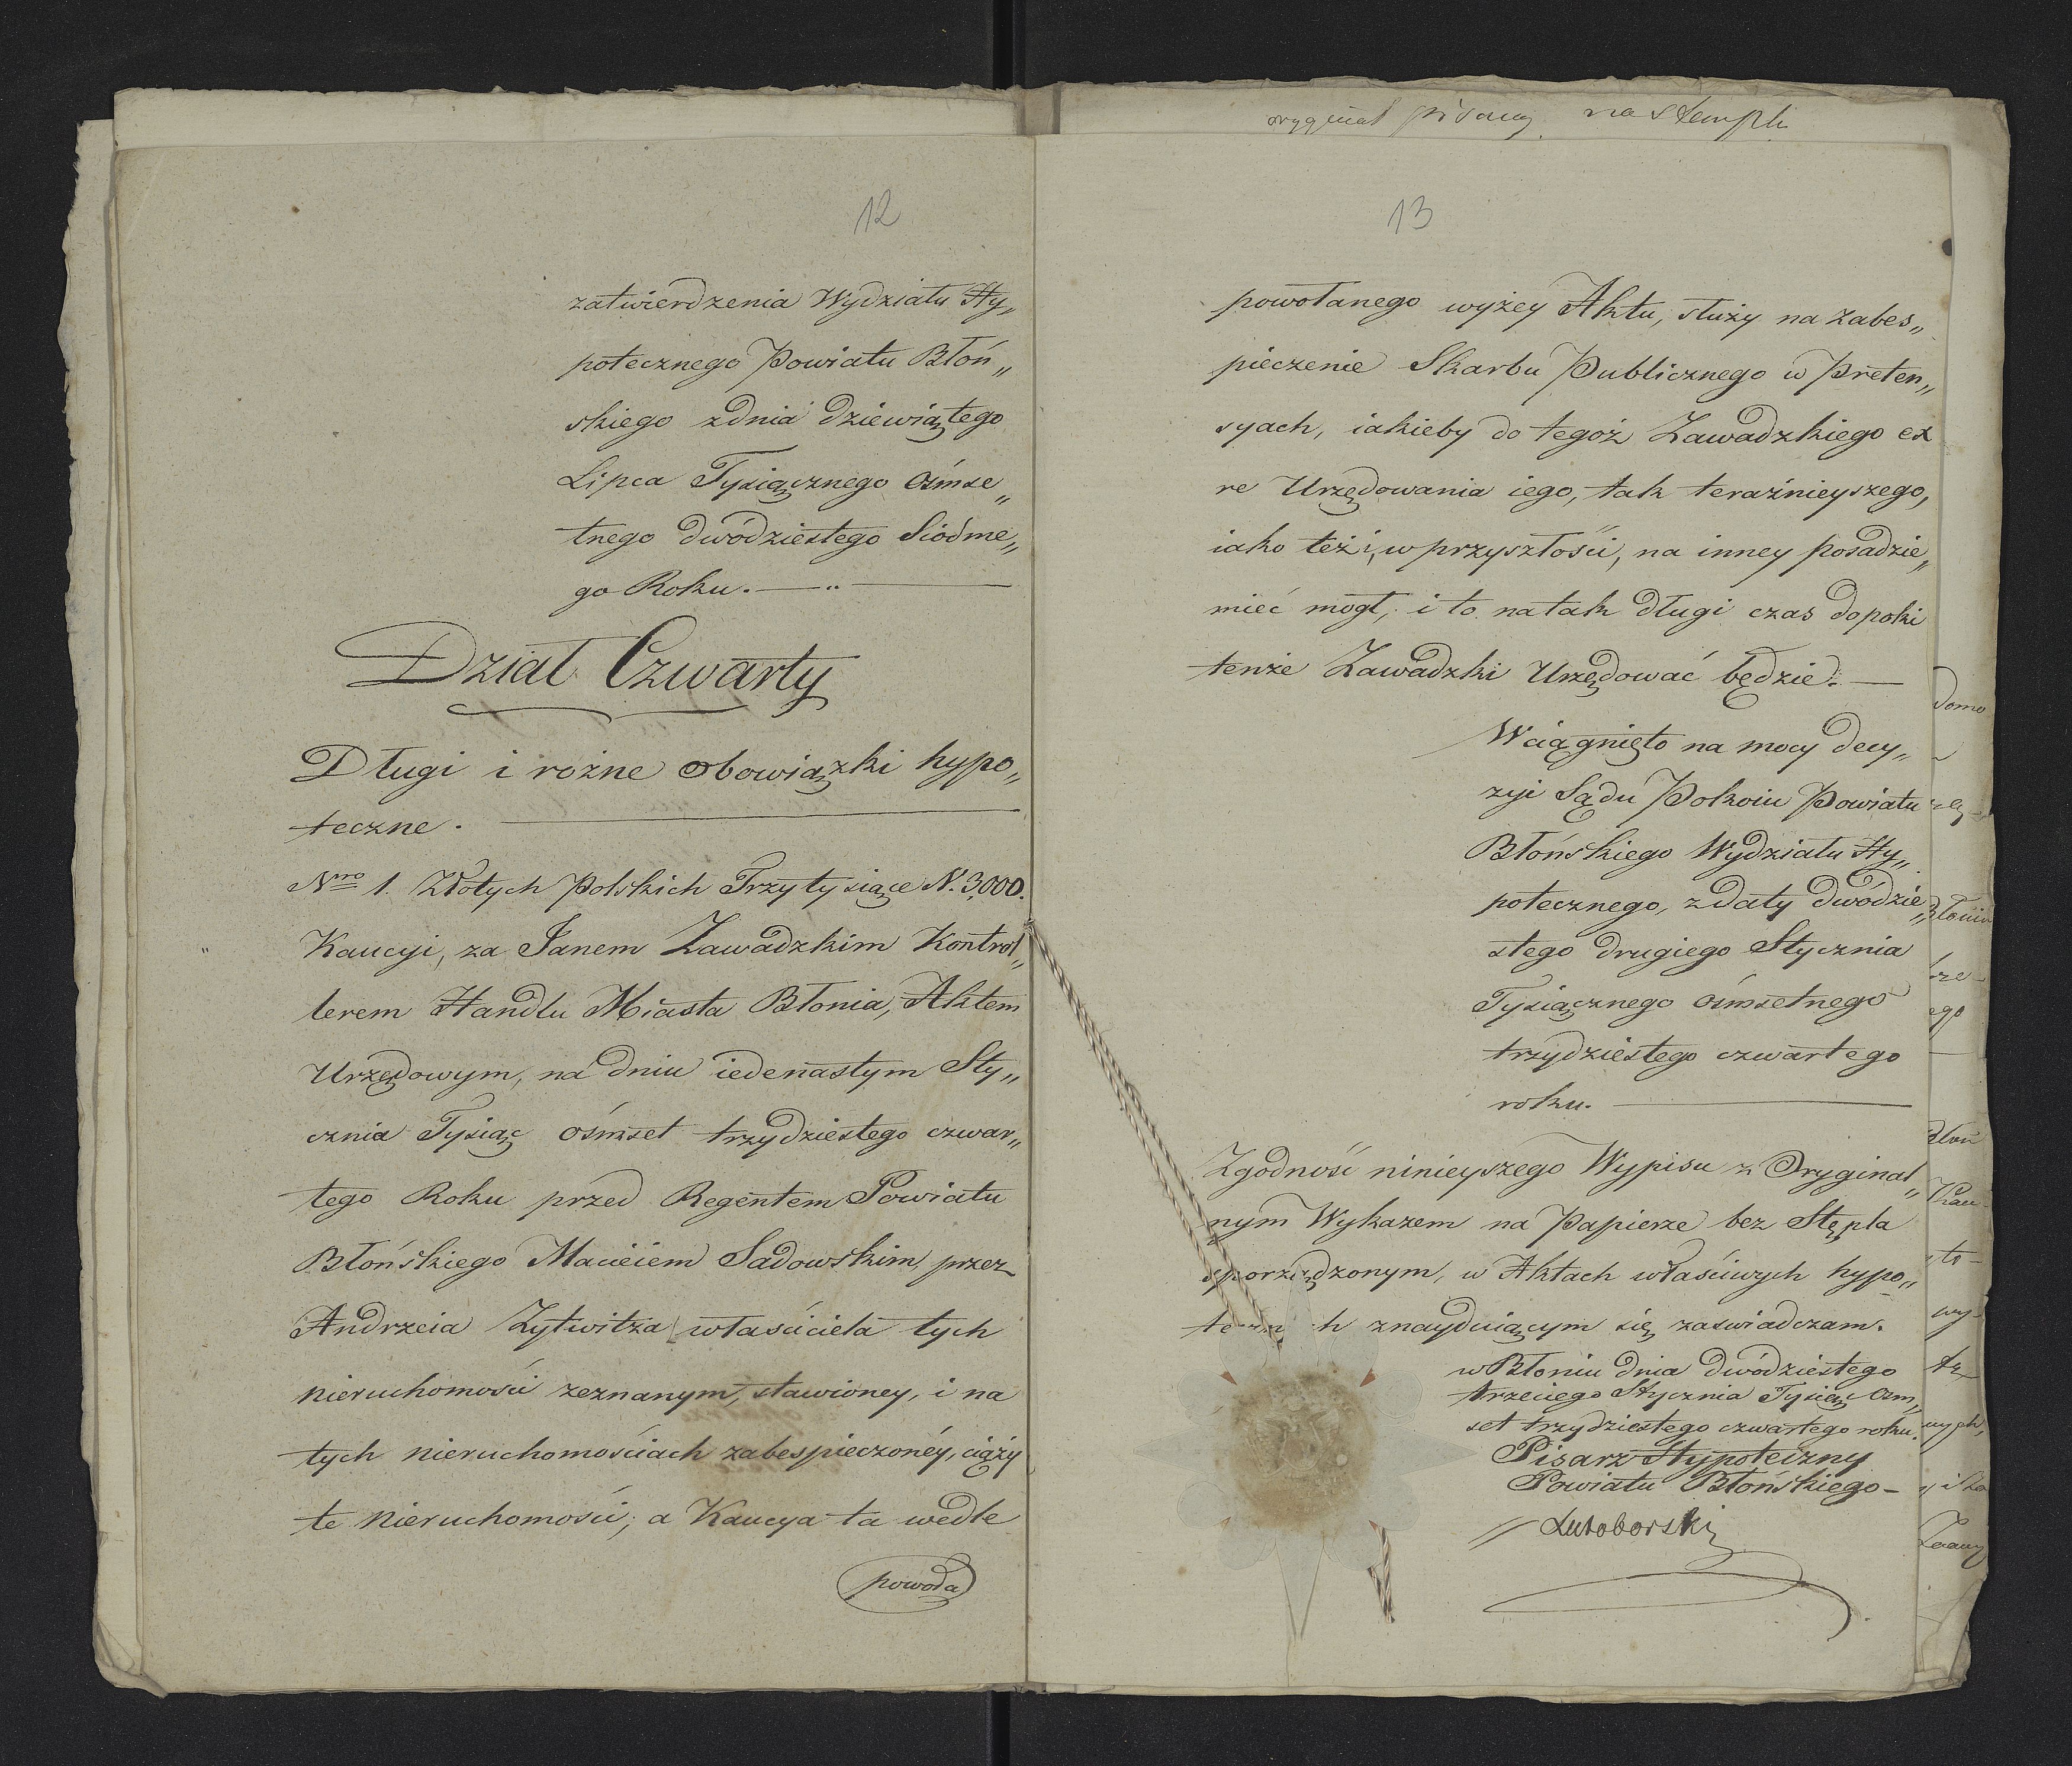 12
zatwierdzenia Wydziału Hy„
potecznego Powiatu Błoń„
skiego z dnia dziewiątego
Lipca Tysiącznego ośmse„
tnego dwódziestego Siódme„
go Roku. — „ —
Dział Czwarty
Długi i rożne obowiązki hypo„
teczne. —
Nro 1. Złotych Polskich Trzy tysiące N. 3,000.
Kaucyi, za Janem Zawadzkim Kontrol„
lerem Handlu Miasta Błonia, Aktem
Urzędowym, na dniu iedenastym Sty„
cznia Tysiąc ośmset trzydziestego czwar„
tego Roku przed Regentem Powiatu
Błońskiego Macieiem Sadowskim, przez
Andrzeia Zytwitza właściciela tych
nieruchomości zeznanym, stawioney, i na
tych nieruchomościach zabespieczonéy, ciąży
te nieruchomości; a Kaucya ta wedle
powoła
oryginał pisany na stemplu
13
powołanego wyżey Aktu, służy na zabes„
pieczenie Skarbu Publicznego w Preten„
syach, iakieby do tegoż Zawadzkiego ex
re Urzędowania iego, tak teraźnieyszego,
iako też i, w przyszłości, na inney posadzie„
mieć mogł, i to na tak długi czas dopoki
tenże Zawadzki Urzędować będzie. —
Wciągnięto na mocy decy„
zyi Sądu Pokoiu Powiatu
Błońskiego Wydziału Hy„
potecznego, z daty dwódzie„
stego drugiego Stycznia
Tysiącznego ośmsetnego
trzydziestego czwartego
roku. —
Zgodność ninieyszego Wypisu z Oryginal„
nym Wykazem na Papierze bez Stępla
sporządzonym, w Aktach właściwych hypo„
tecznych znayduiącym się zaświadczam.
w Błoniu dnia dwódziestego
trzeciego Stycznia Tysiąc ośm„
set trzydziestego czwartego roku.
Pisarz Hypoteczny
Powiatu Błońskiego —
Lutoborski